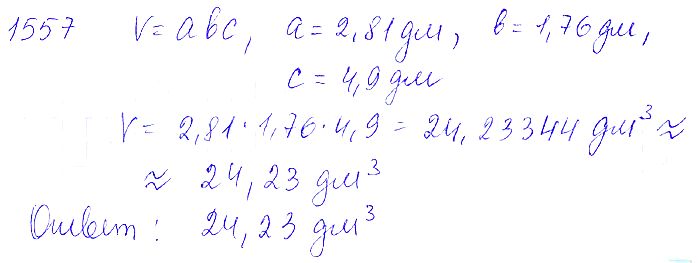 1557 V = abc, a = 2,81 дм, b = 1,76 дм,
c = 4,9 дм
V = 2,81 · 1,76 · 4,9 = 24,23344 дм³ ≈
≈ 24,23 дм³
Ответ: 24,23 дм³